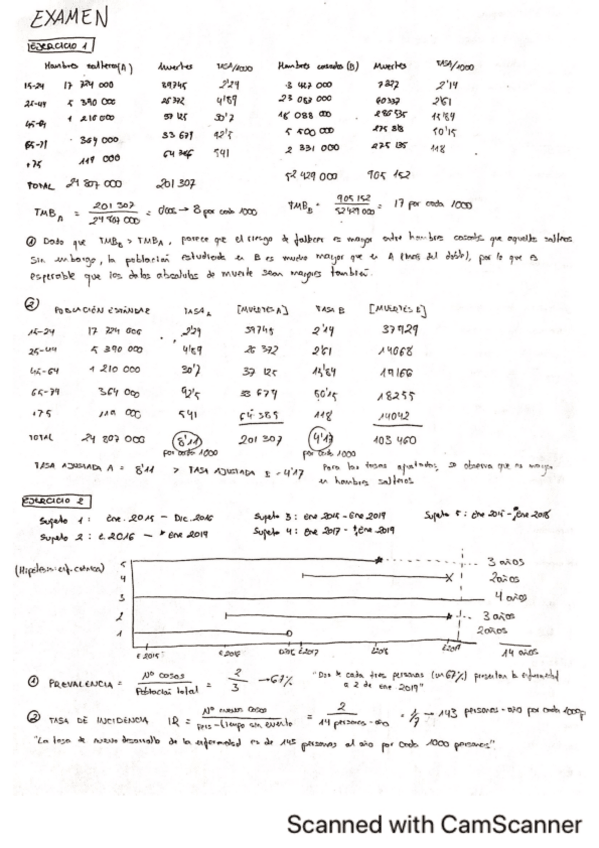 EXAMEN
EJERCICIO 1
Hombres solteros (A) Muertes TASA/1000 Hombres casados (B) Muertes TASA/1000
15-24 17 724 000 39745 2'29 3 467 000 7327 2'14
25-44 5 390 000 26 372 4'89 23 087 000 60337 2'61
45-64 1 210 000 37 125 30'7 18 088 000 286 535 15'84
65-74 364 000 33 679 92'5 5 500 000 275 818 50'15
+75 119 000 64 386 541 2 331 000 275 135 118
TOTAL 24 807 000 201 307 52 429 000 905 152
TMB A = 201 307 / 24 807 000 = → 8 por cada 1000 TMB B = 905 152 / 52 429 000 = 17 por cada 1000
① Dado que TMB B > TMB A, parece que el riesgo de fallecer es mayor entre hombres casados que aquellos solteros
Sin embargo, la población estudiada en B es mucho mayor que en A (más del doble), por lo que es
esperable que los datos absolutos de muerte sean mayores también.
② POBLACIÓN ESTÁNDAR TASA A [MUERTES A] TASA B [MUERTES B]
15-24 17 724 000 2'29 39745 2'14 37929
25-44 5 390 000 4'89 26 372 2'61 14068
45-64 1 210 000 30'7 37 125 15'84 19166
65-74 364 000 92'5 33 679 50'15 18255
+75 119 000 541 64 385 118 14042
TOTAL 24 807 000 8'11 201 307 4'17 103 460
por cada 1000 por cada 1000
TASA AJUSTADA A = 8'11 > TASA AJUSTADA B = 4'17 Para las tasas ajustadas, se observa que es mayor
en hombres solteros
EJERCICIO 2
Sujeto 1: ene. 2015 - Dic. 2016 Sujeto 3: ene 2015 - ene 2019 Sujeto 5: ene 2015 - ene 2018
Sujeto 2: e. 2016 - ene 2019 Sujeto 4: ene 2017 - ene 2019
(Hipótesis: enf. crónica)
5 3 años
4 2 años
3 4 años
2 3 años
1 2 años
E 2015 E 2016 D16 E2017 E2018 E2019 14 años
① PREVALENCIA = Nº casos / Población total = 2 / 3 → 67% "Dos de cada tres personas (un 67%) presentan la enfermedad
a 2 de ene 2019"
② TASA DE INCIDENCIA IR = Nº nuevos casos / pers-tiempo sin evento = 2 / 14 personas-año = 1/7 → 143 personas-año por cada 1000p
"La tasa de nuevo desarrollo de la enfermedad es de 143 personas al año por cada 1000 personas".
Scanned with CamScanner